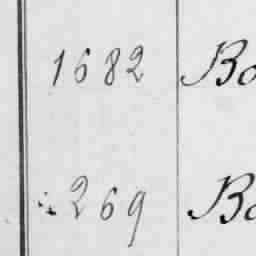 1682 Bo
269 Bo